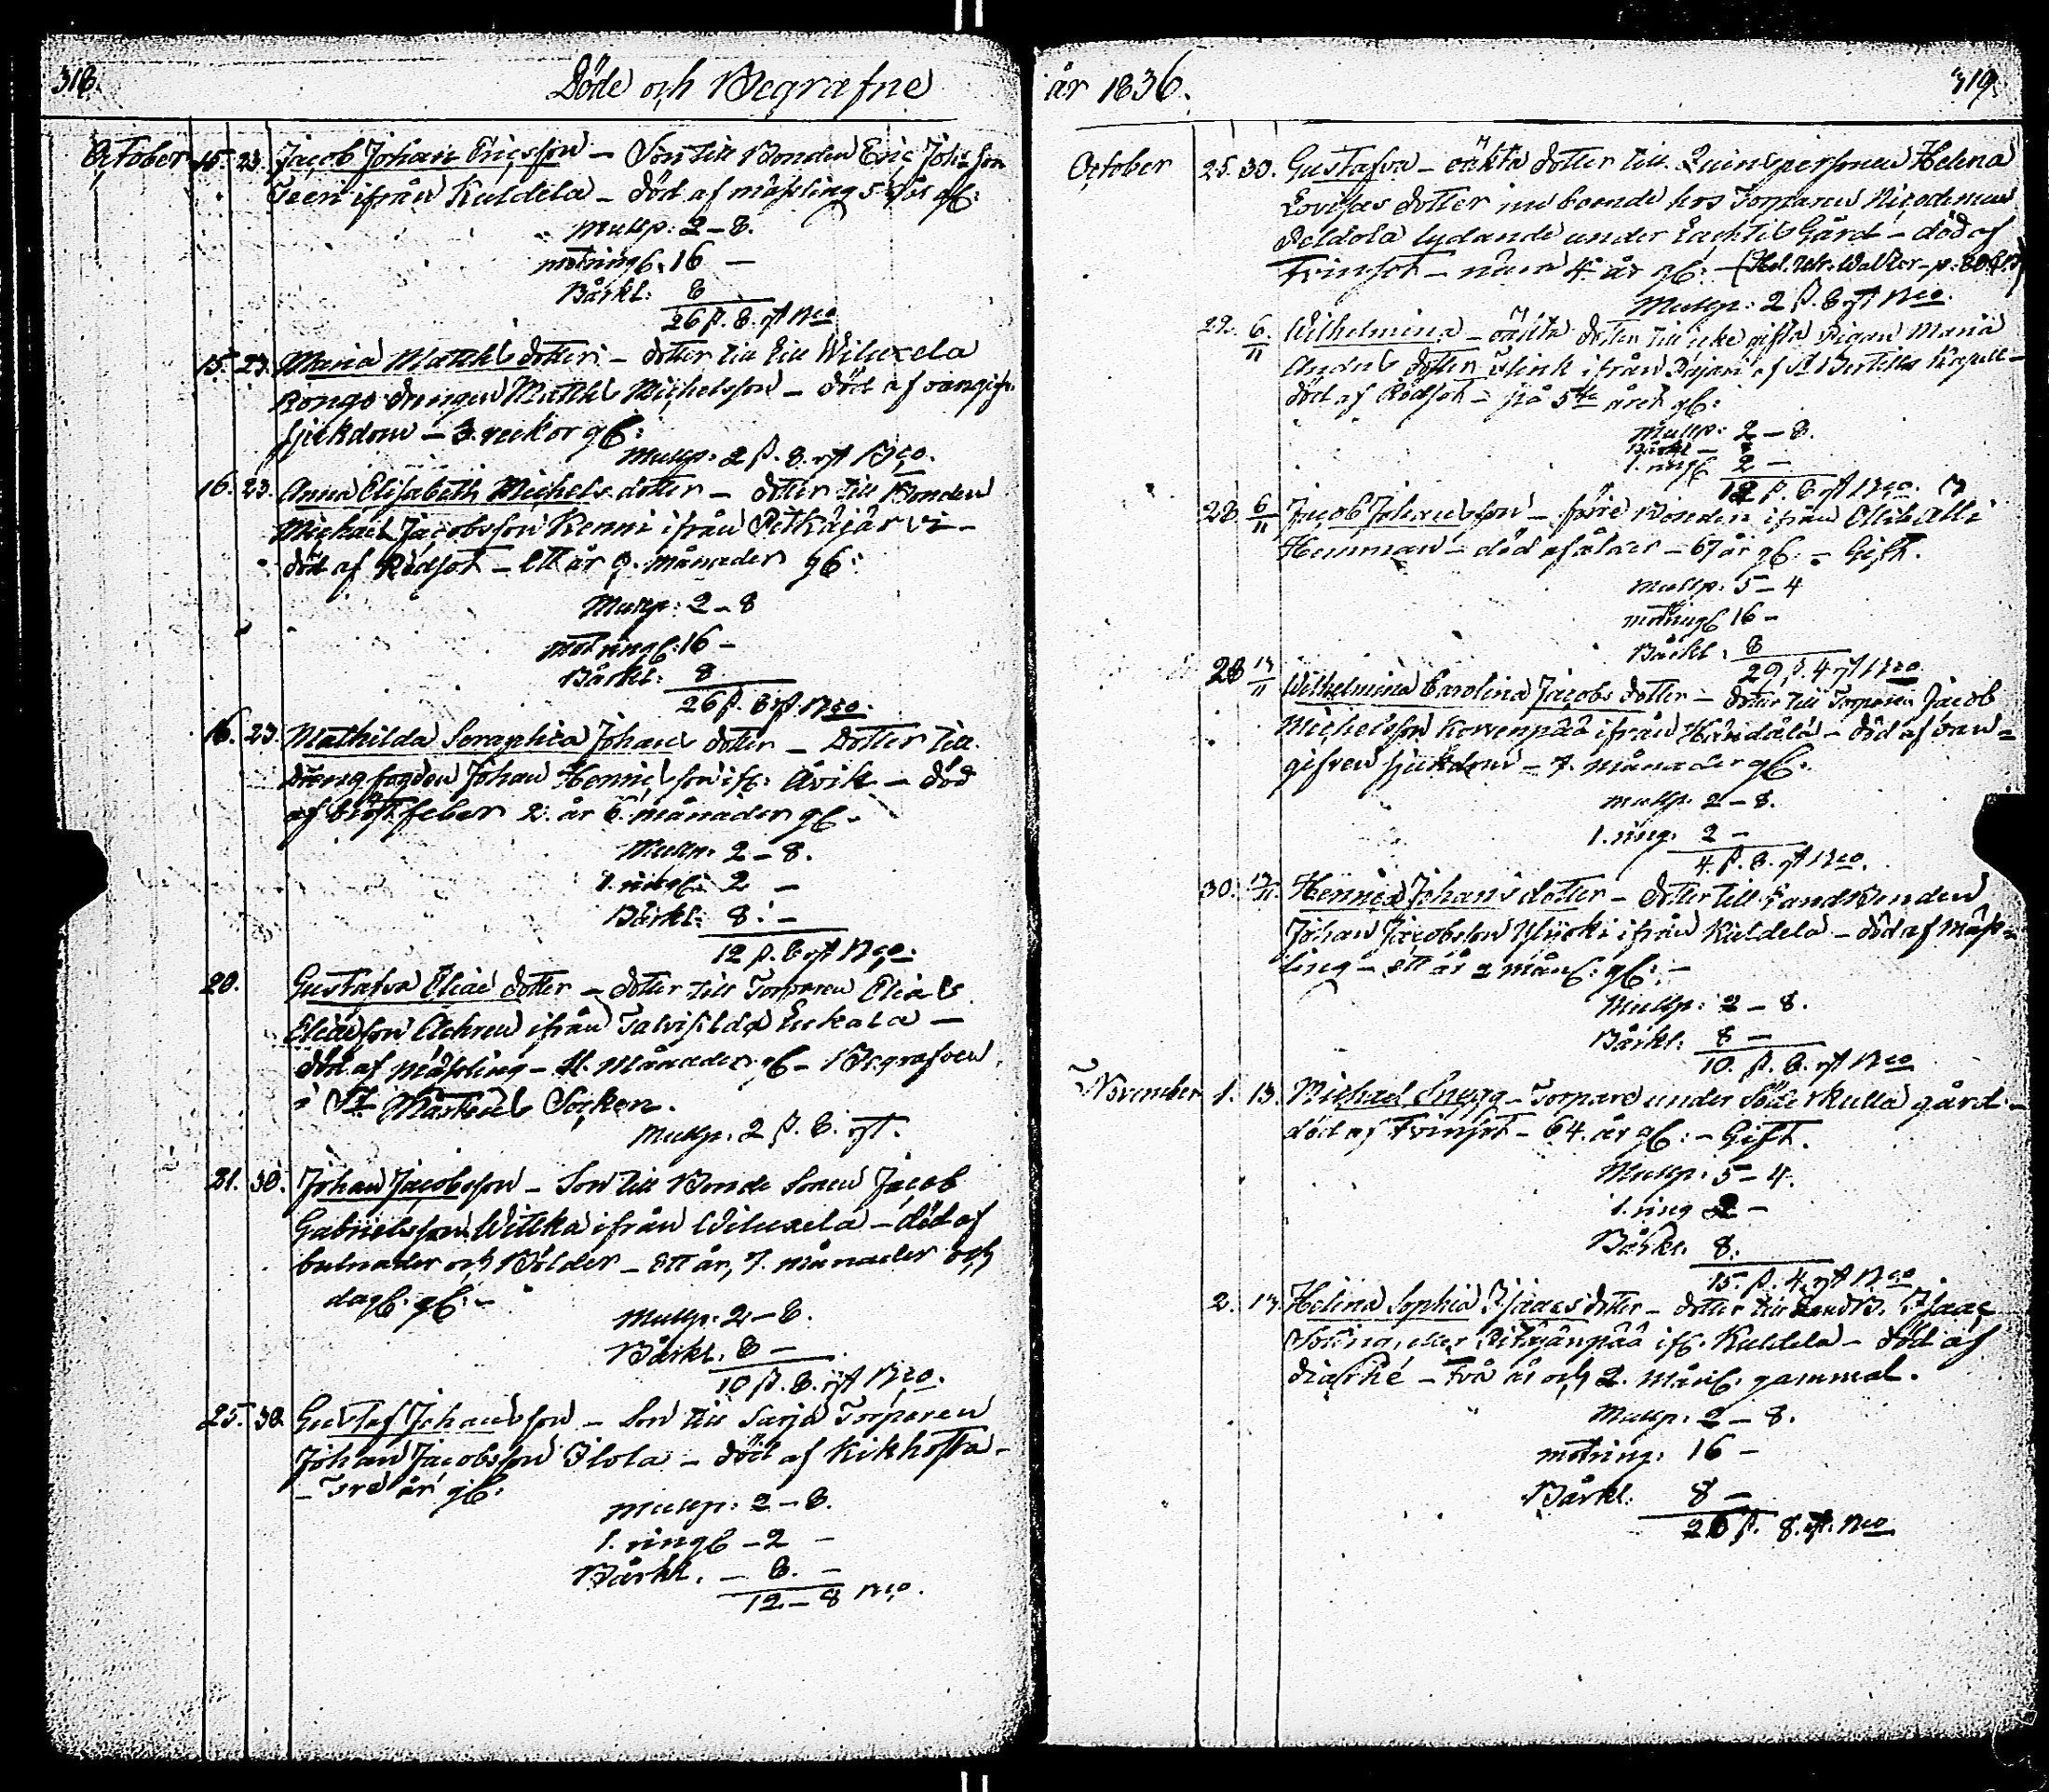 318.
Döde och Begrafne
October 15. 23. Jacob Johan Ericsson - Son till Bonden Eric Johansson
Teeri ifrån Kuldela - död af mässling 5 år gl:
Mullp: 2 - 8.
motringl. 16 -
Bårkl: 8
26 ß. 8. rst Bco
15. 23. Maria Matths dotter - dotter till Wiluxela
Rongo drängen Matths Michelsson - död af oangifn
sjukdom - 3. veckor gl:
Mullp: 2 ß. 8. rst Bco.
16. 23. Anna Elisabeth Michels dotter - dotter till Bonden
Michael Jacobsson Kenni ifrån Petkäjärvi -
död af Rödsot - ett år 9. månader gl:
Mullp: 2 - 8
motringl: 16 -
Bårkl: 8
26 ß. 8 rst. Bco.
16. 23. Mathilda Seraphia Johans dotter - Dotter till
drängfogden Johan Henricsson ifl: Åvik - död
af feber 2. år 6. månader gl.
Mullp. 2 - 8.
1. ringl: 2 -
Bårkl: 8. -
12 ß. 8 rst Bco.
20. Gustafva Eliæ dotter - dotter till Torparen Elias
Eliæson ifrån -
död af mässling - 11. Månader gl - Begrafven
i St Mårtens Socken.
Mullp: 2 ß. 8. rst.
21. 30. Johan Jacobsson - Son till Bonde Sonen Jacob
Gabrielsson Wittka ifrån Wiluxela - död af
bulnader och Bölder - ett år, 7. månader och
dagl: gl: -
Mullp: 2 - 8.
Bårkl. 8 -
10 ß. 8. rst Bco.
25. 30 Gustaf Johansson - Son till Sarja Torparen
Johan Jacobsson Ilola - död af Kikhosta -
- Tre år gl:
Mullp: 2 - 8.
1. ringl - 2 -
Bårkl. - 8. -
12 - 8 Bco.
år 1836.
319.
October 25. 30. Gustafva - oäkta dotter till Quinspersonen Helena
Lovisas dotter inneboende hos Torparen Nicodemus
Peldola lydande under Lachtis Gård - död af
Tvinsot - 4 år gl: -
Mullp: 2 ß. 8 rst Bco.
22. 6/11 Wilhelmina - oäkta dotter till icke gifta Pigan Maria
Anders dotter Flink ifrån af St Bertils Kapell -
död af Rödsot - på 5te året gl:
Mullp: 2 - 8.
Bårkl -
1. ringl 2 -
12 ß. 8 rst Bco.
28. 6/11 Jacob Johansson - förre Bonden ifrån
Hemman - död af ålder - 67 år gl. - Gift.
Mullp: 5 - 4
motringl 16 -
Bårkl: 8
29. ß. 4 rst Bco
28 13/11 Wilhelmina Carolina Jacobs dotter - dotter till Torparen Jacob
Michelsson Korvenpää ifrån - död af oan=
gifven sjukdom - 7. månader gl:
Mullp. 2 - 8.
1. ring. 2 -
4. ß. 8. rst Bco.
30. 13/11. Henrica Johans dotter - dotter till Landbonden
Johan Jacobsson Yliseki ifrån Kuldela - död af Mäss=
ling - ett år 2 månl: gl: -
Mullp: 2 - 8.
Bårkl: 8 -
10. ß. 8. rst Bco
November 1. 13. Michael Snygg - Torpare under Söderkulla gård -
död af Tvinsot - 64. år gl: - Gift.
Mullp: 5 - 4.
1. ring 2 -
Bårkl. 8.
15. ß. 4. rst Bco
2. 13. Helena Sophia Isaacs dotter - dotter till LandB. Isaac
ifl. Kuldela - död af
diarhé - Två år och 2. månl: gammal.
Mullp: 2 - 8.
motring: 16 -
Bårkl: 8 -
26 ß. 8. rst. Bco